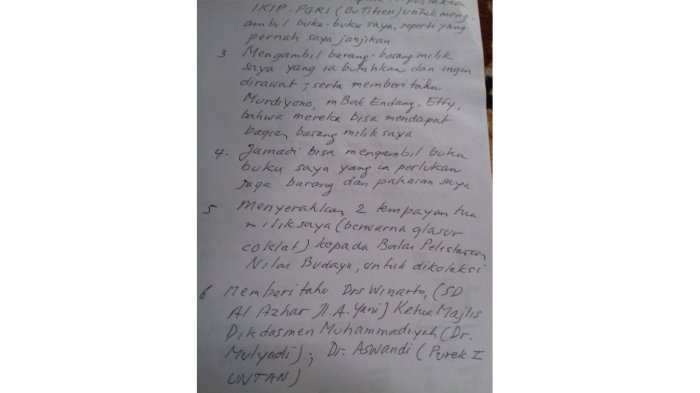 IKIP-PGRI (Butihen) untuk meng-
ambil buku-buku saya, seperti yang
pernah saya janjikan
3 Mengambil barang-barang milik
saya yang ia butuhkan dan ingin
dirawat; serta memberitahu
Murdiyono, mBak Endang, Etty,
bahwa mereka bisa mendapat
bagian barang milik saya
4. Jumadi bisa mengambil buku
buku saya yang ia perlukan
juga barang dan pakaian saya
5 Menyerahkan 2 tempayan tua
milik saya (berwarna glasur
coklat) kepada Balai Pelestarian
Nilai Budaya, untuk dikoleksi
6 Memberitahu Drs Winarto, (SD
Al Azhar Jl A. Yani) Ketua Majlis
Dikdasmen Muhammadiyah (Dr.
Mulyadi); Dr. Aswandi (Purek I
UNTAN)